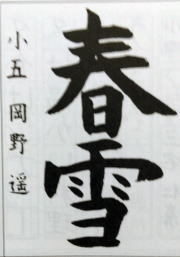 春雪
小五 岡野 遥